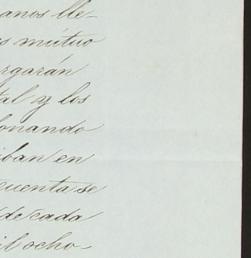 anos lle-
s mútuo
rgarán
tal y los
onando
iban en
cuenta se
de cada
il ocho-